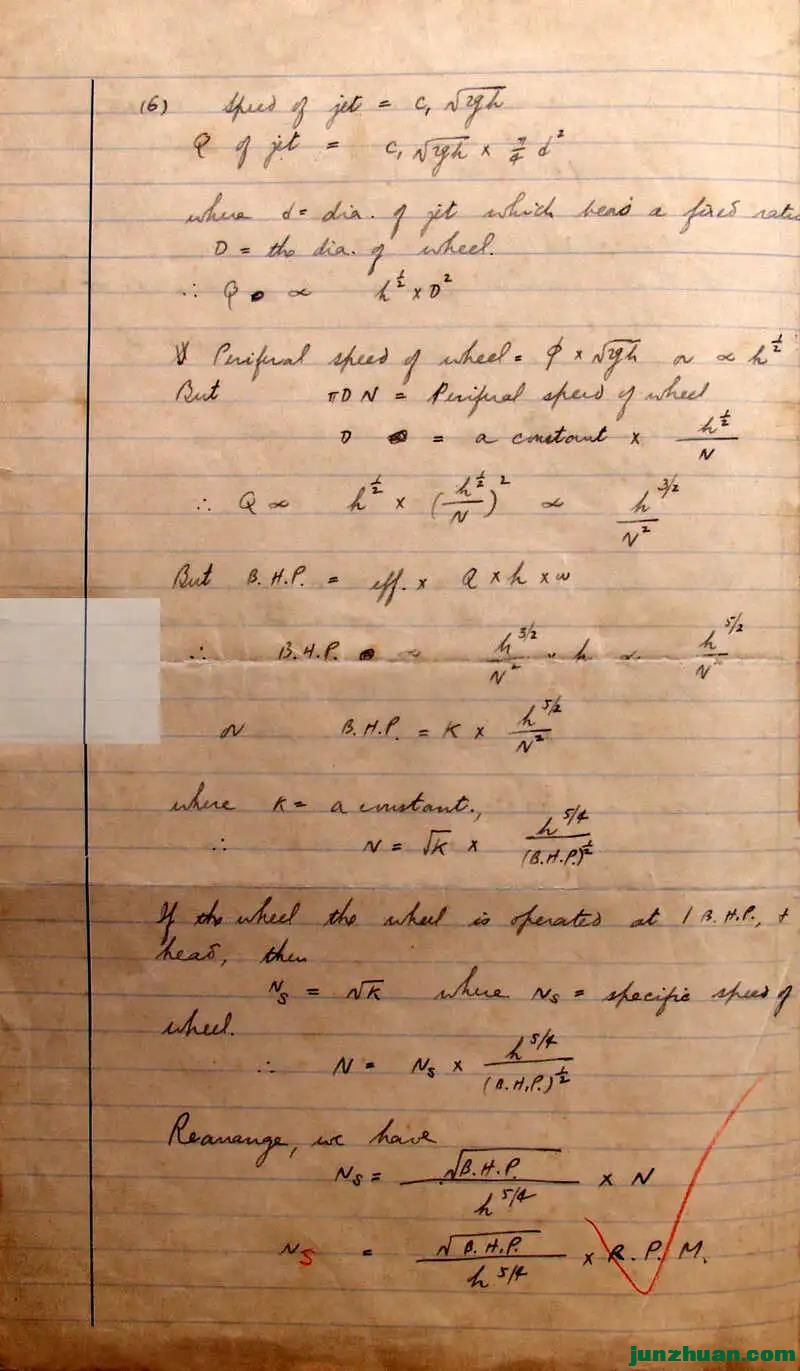 (6) Speed of jet = c₁ √2gh
Q of jet = c₁ √2gh × π/4 d²
where d = dia. of jet which bears a fixed ratio
D = the dia. of wheel.
∴ Q ∝ h^½ × D²
Periferal speed of wheel = φ × √2gh or ∝ h^½
But πDN = Periferal speed of wheel
D = a constant × h^½/N
∴ Q ∝ h^½ × (h^½/N)² ∝ h^3/2/N²
But B.H.P. = eff. × Q × h × w
∴ B.H.P. ∝ h^3/2/N² × h ∝ h^5/2/N²
or B.H.P. = K × h^5/2/N²
where K = a constant.,
∴ N = √K × h^5/4/(B.H.P.)^½
If the wheel the wheel is operated at 1 B.H.P., +
head, then
Ns = √K where Ns = specific speed of
wheel.
∴ N = Ns × h^5/4/(B.H.P.)^½
Rearange, we have
Ns = √B.H.P./h^5/4 × N
Ns = √B.H.P./h^5/4 × R.P.M.
junzhuan.com